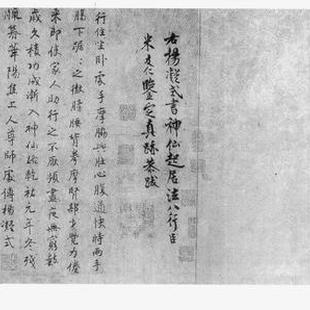 右楊凝式書神仙起居法八行臣
米友仁鑒定真跡恭跋
行住坐臥處手摩脅與肚心腹通快時兩手
腸下踞〻之徹膀腰背拳摩腎部才覺力倦
來即使家人助行之不厭頻晝夜無窮數
歲久積功成漸入神仙路乾祐元年冬殘
臘暮華陽焦上人尊師處傳楊凝式